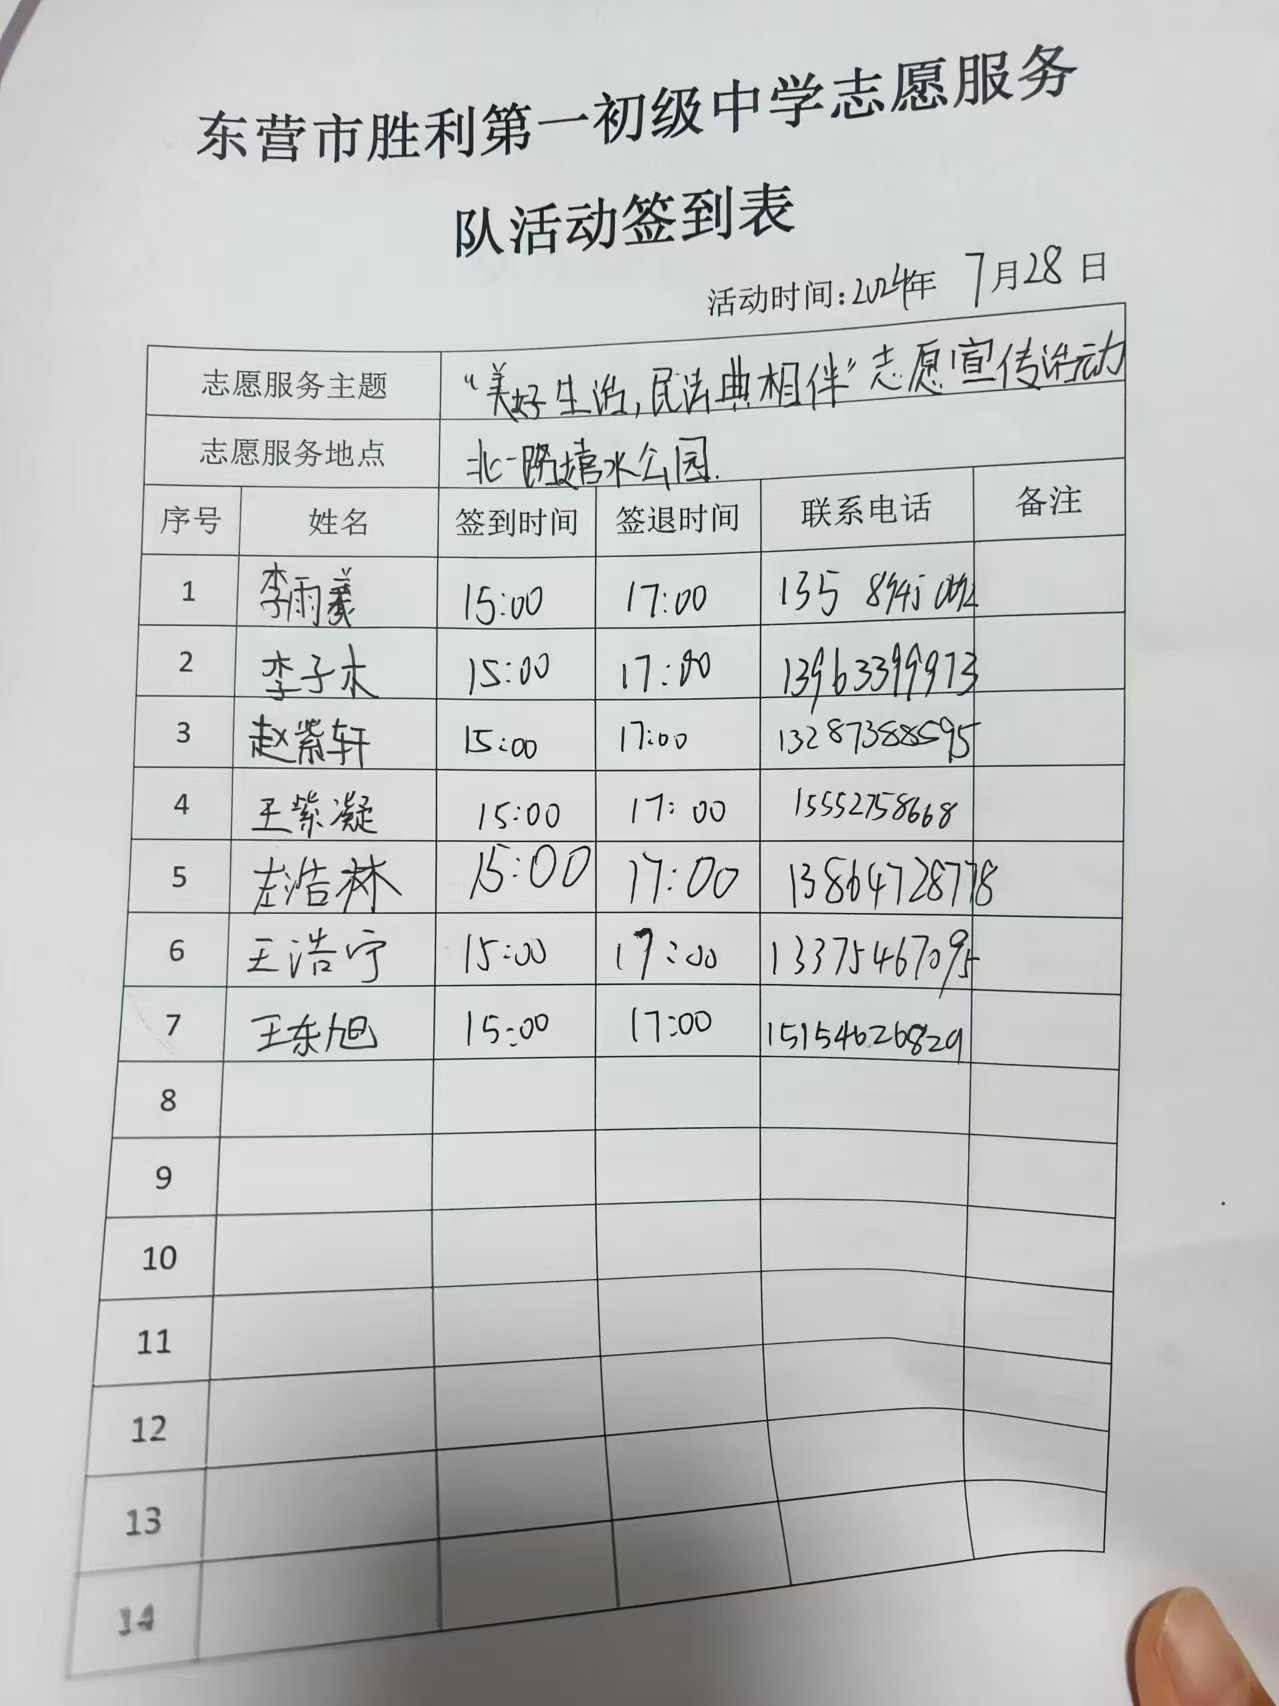 东营市胜利第一初级中学志愿服务
队活动签到表
活动时间:2024年 7月28日
志愿服务主题 “美好生活,民法典相伴”志愿宣传活动
志愿服务地点 北一路嬉水公园.
序号 姓名 签到时间 签退时间 联系电话 备注
1 李雨羲 15:00 17:00 135
2 李子木 15:00 17:00 13963399973
3 赵紫轩 15:00 17:00 13287388595
4 王紫凝 15:00 17:00 15552758668
5 左浩林 15:00 17:00 13864728778
6 王浩宁 15:00 17:00 13375467095
7 王东旭 15:00 17:00 15154626829
8
9
10
11
12
13
14